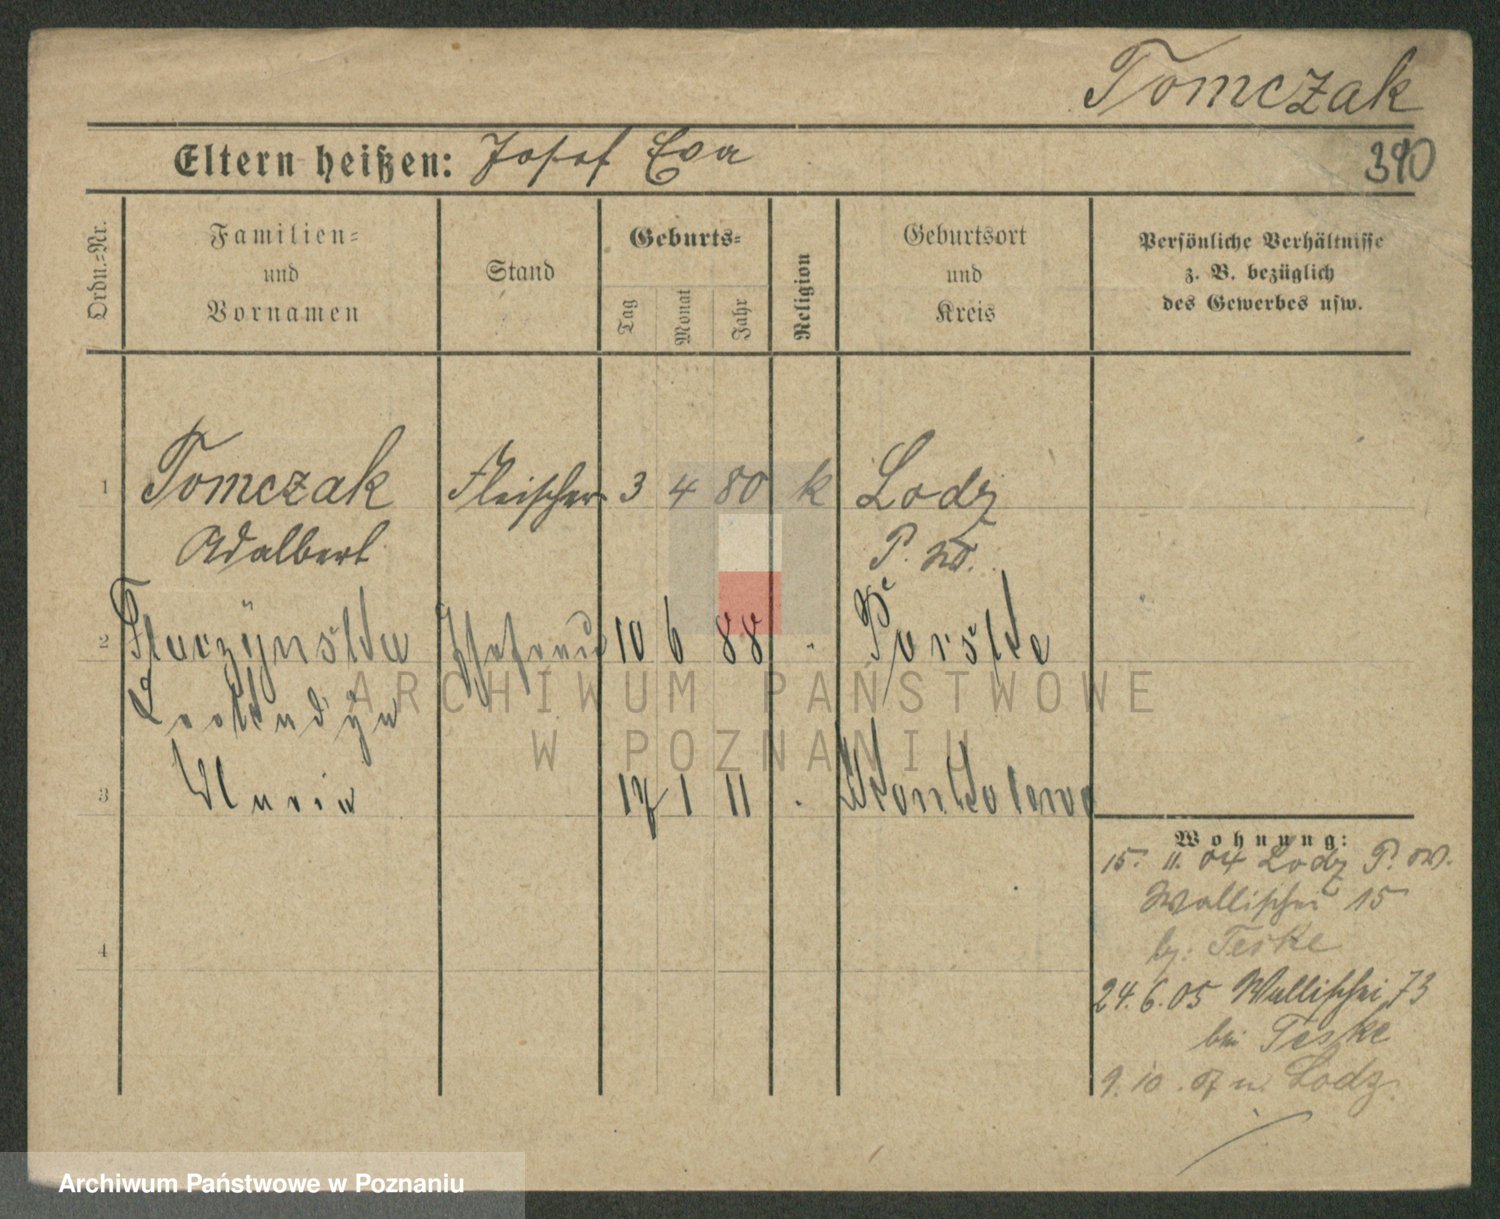 Tomczak
Eltern heißen: Josef Eva
390
Ordn.-Nr.
Familien-
und
Vornamen
Stand
Geburts-
Tag
Monat
Jahr
Religion
Geburtsort
und
Kreis
Persönliche Verhältnisse
z. B. bezüglich
des Gewerbes usw.
1 Tomczak Fleischer 3 4 80 k Lodz
Adalbert P. W.
2 Ehefrau 10 6 88
3 Maria 17 1 11
4
Wohnung:
15. 11. 04 Lodz P. W.
Wallischei 15
b. Teske
24. 6. 05 Wallischei 73
bei Teske
9. 10. 07 n. Lodz
ARCHIWUM PAŃSTWOWE
W POZNANIU
Archiwum Państwowe w Poznaniu